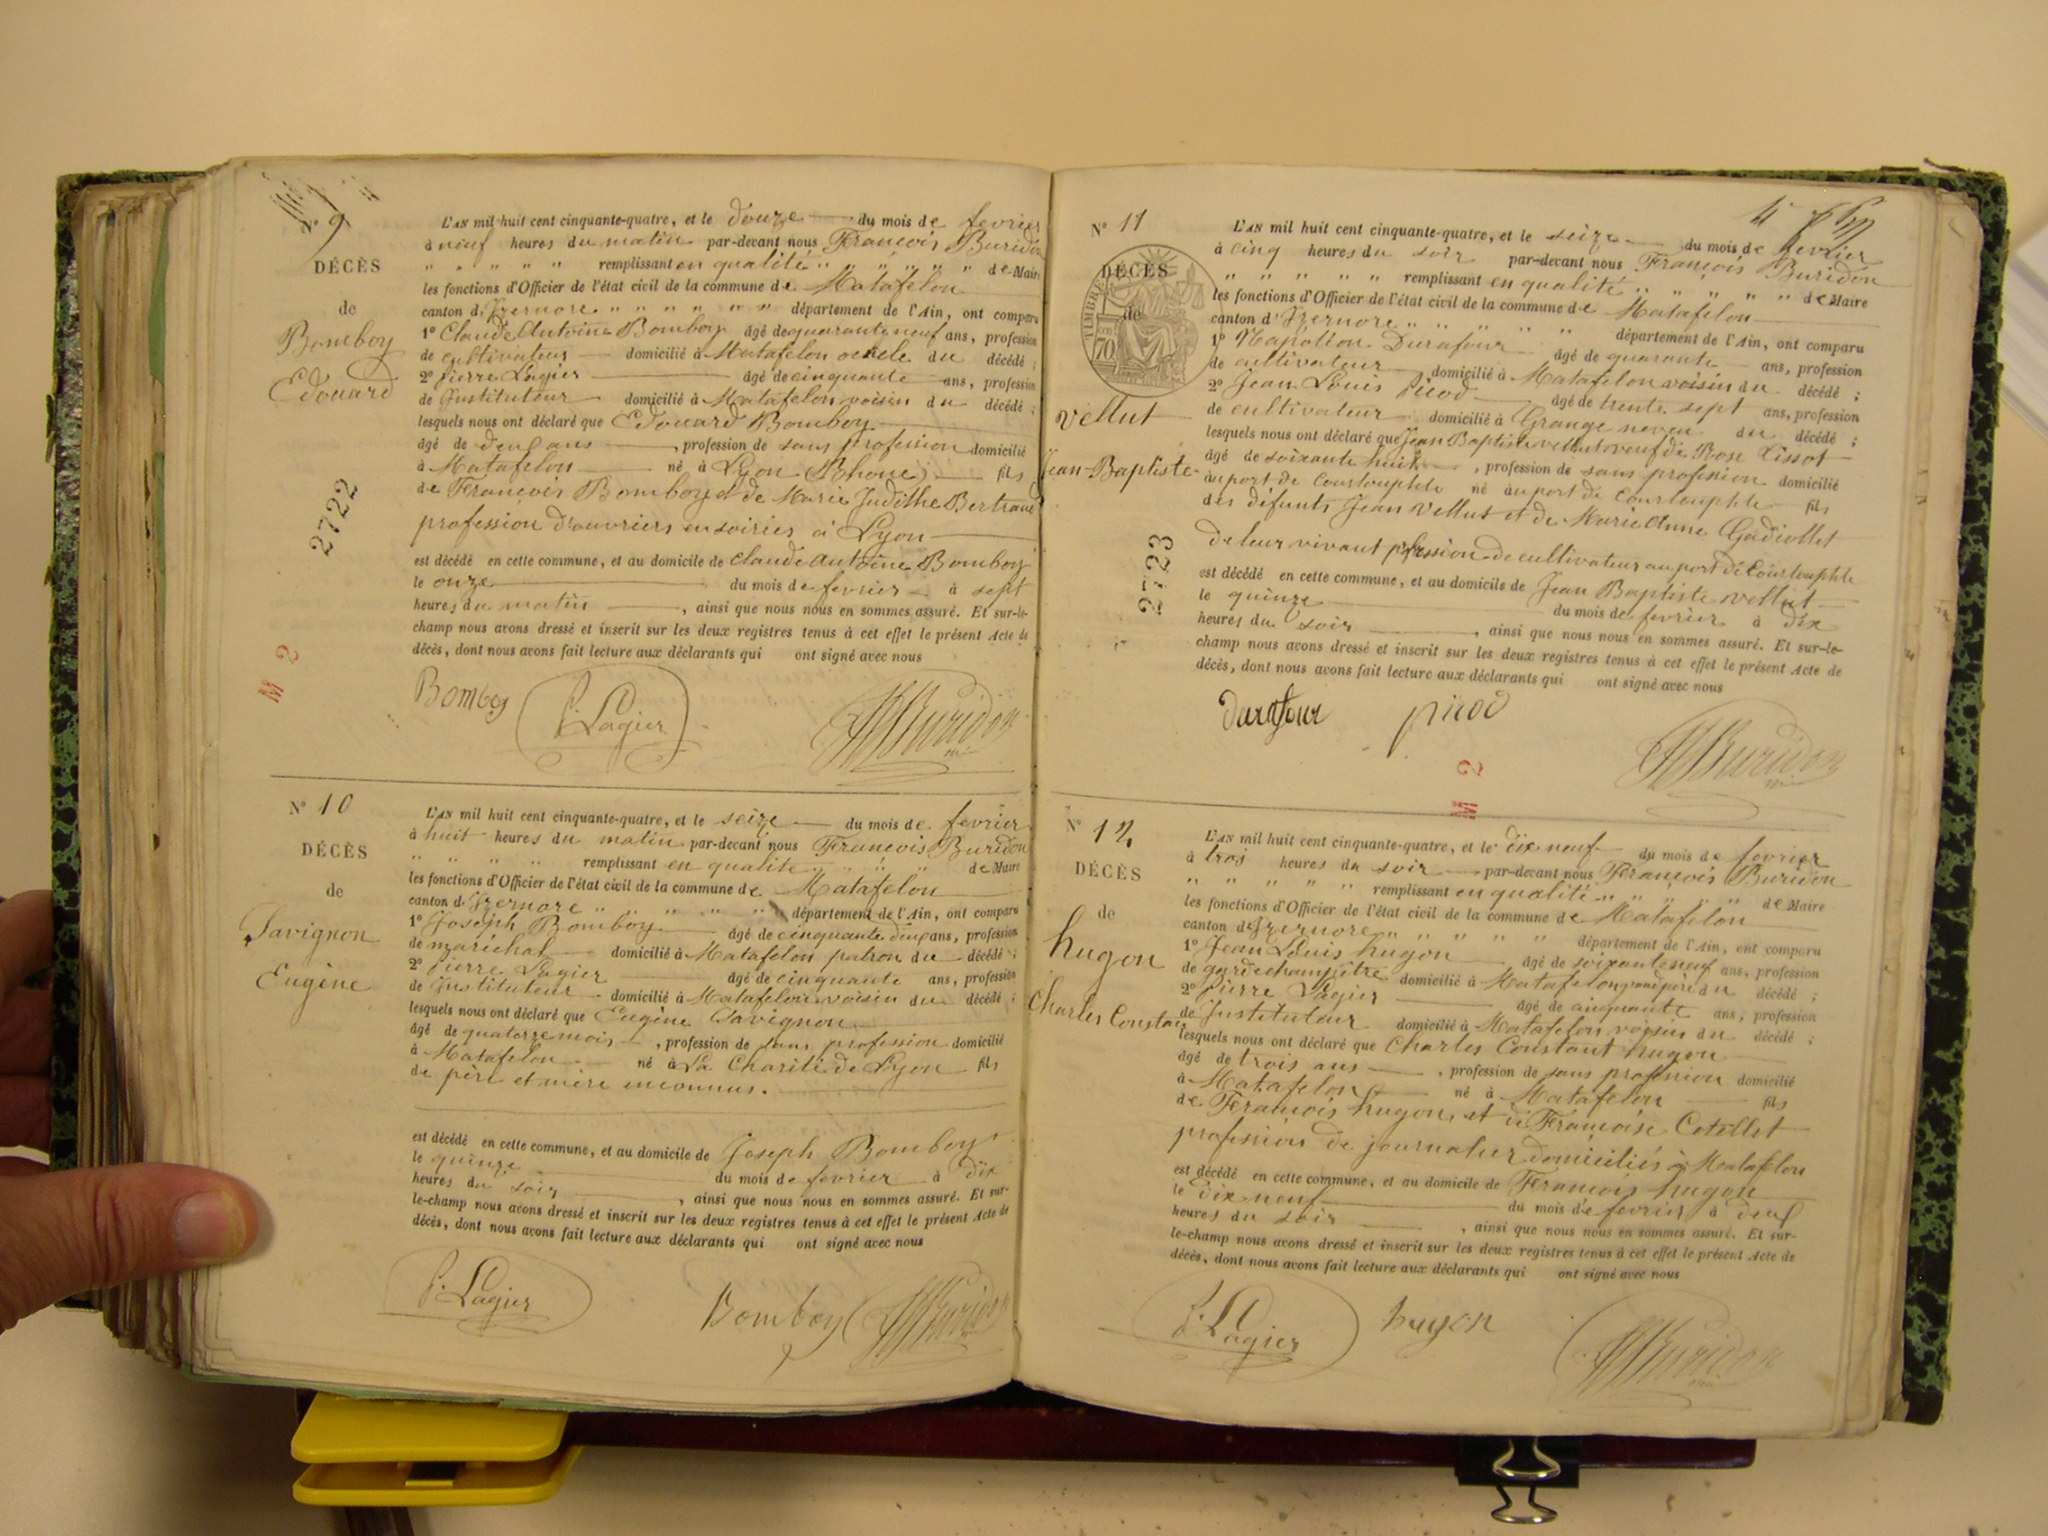 N° 9
DÉCÈS
de
Bomboy
Edouard
2722
M 2
L'AN mil huit cent cinquante-quatre, et le douze du mois de fevrier
à neuf heures du matin par-devant nous François Buridon
" " " " " remplissant en qualité " " " " " " de Maire
les fonctions d'Officier de l'état civil de la commune de Matafelon
canton d'Izernore " " " " " " département de l'Ain, ont comparu
1° Claude Antoine Bomboy âgé de quarante neuf ans, profession
de cultivateur domicilié à Matafelon oncle du décédé ;
2° Pierre Lagier âgé de cinquante ans, profession
de Instituteur domicilié à Matafelon voisin du décédé ;
lesquels nous ont déclaré que Edouard Bomboy
âgé de deux ans , profession de sans profession domicilié
à Matafelon né à Lyon Rhone fils
de François Bomboy et de Marie Judithe Bertrand
profession d'ouvriers en soiries à Lyon
est décédé en cette commune, et au domicile de Claude Antoine Bomboy
le onze du mois de fevrier à sept
heures du matin , ainsi que nous nous en sommes assuré. Et sur-le-
champ nous avons dressé et inscrit sur les deux registres tenus à cet effet le présent Acte de
décès, dont nous avons fait lecture aux déclarants qui ont signé avec nous
Bomboy P. Lagier Buridon
N° 10
DÉCÈS
de
Savignon
Eugène
L'AN mil huit cent cinquante-quatre, et le seize du mois de fevrier
à huit heures du matin par-devant nous François Buridon
" " " " remplissant en qualite " " " de Maire
les fonctions d'Officier de l'état civil de la commune de Matafelon
canton d'Izernore " " " " " " département de l'Ain, ont comparu
1° Joseph Bomboy âgé de cinquante deux ans, profession
de maréchal domicilié à Matafelon patron du décédé ;
2° Pierre Lagier âgé de cinquante ans, profession
de instituteur domicilié à Matafelon voisin du décédé ;
lesquels nous ont déclaré que Eugène Savignon
âgé de quatorze mois , profession de sans profession domicilié
à Matafelon né à La Charité de Lyon fils
de père et mère inconnus.
est décédé en cette commune, et au domicile de Joseph Bomboy
le quinze du mois de fevrier à dix
heures du soir , ainsi que nous nous en sommes assuré. Et sur-
le-champ nous avons dressé et inscrit sur les deux registres tenus à cet effet le présent Acte de
décès, dont nous avons fait lecture aux déclarants qui ont signé avec nous
P. Lagier Bomboy Buridon
N° 11
DÉCÈS
de
TIMBRE
70
Vellut
Jean-Baptiste
2723
L'AN mil huit cent cinquante-quatre, et le seize du mois de fevrier
à cinq heures du soir par-devant nous François Buridon
" " " " " remplissant en qualité " " " " " de Maire
les fonctions d'Officier de l'état civil de la commune de Matafelon
canton d'Izernore " " " " " département de l'Ain, ont comparu
1° Napoléon Durafour âgé de quarante ans, profession
de cultivateur domicilié à Matafelon voisin du décédé ;
2° Jean Louis Picod âgé de trente sept ans, profession
de cultivateur domicilié à Grange neveu du décédé ;
lesquels nous ont déclaré que Jean Baptiste Vellut veuf de Rose Tissot
âgé de soixante huit , profession de sans profession domicilié
à u port de Courtouphle né au port de Courtouphle fils
des défunts Jean Vellut et de Marie Anne Gadiollet
de leur vivant pfession de cultivateur au port de Courtouphle
est décédé en cette commune, et au domicile de Jean Baptiste Vellut
le quinze du mois de fevrier à dix
heures du soir , ainsi que nous nous en sommes assuré. Et sur-le-
champ nous avons dressé et inscrit sur les deux registres tenus à cet effet le présent Acte de
décès, dont nous avons fait lecture aux déclarants qui ont signé avec nous
durafour picod Buridon
M 2
N° 12
DÉCÈS
de
hugon
Charles Constant
L'AN mil huit cent cinquante-quatre, et le dix neuf du mois de fevrier
à trois heures du soir par-devant nous François Buridon
" " " " " remplissant en qualité " " " " " de Maire
les fonctions d'Officier de l'état civil de la commune de Matafelon
canton d'Izernore " " " " " département de l'Ain, ont comparu
1° Jean Louis hugon âgé de soixante neuf ans, profession
de garde champêtre domicilié à Matafelon grand père du décédé ;
2° Pierre Lagier âgé de cinquante ans, profession
de Instituteur domicilié à Matafelon voisin du décédé ;
lesquels nous ont déclaré que Charles Constant hugon
âgé de trois ans , profession de sans profession domicilié
à Matafelon né à Matafelon fils
de François hugon, et de Françoise Cotellet
profession de journalier domiciliés à Matafelon
est décédé en cette commune, et au domicile de François hugon
le dix neuf du mois de fevrier à deux
heures du soir , ainsi que nous nous en sommes assuré. Et sur-
le-champ nous avons dressé et inscrit sur les deux registres tenus à cet effet le présent Acte de
décès, dont nous avons fait lecture aux déclarants qui ont signé avec nous
P. Lagier hugon Buridon